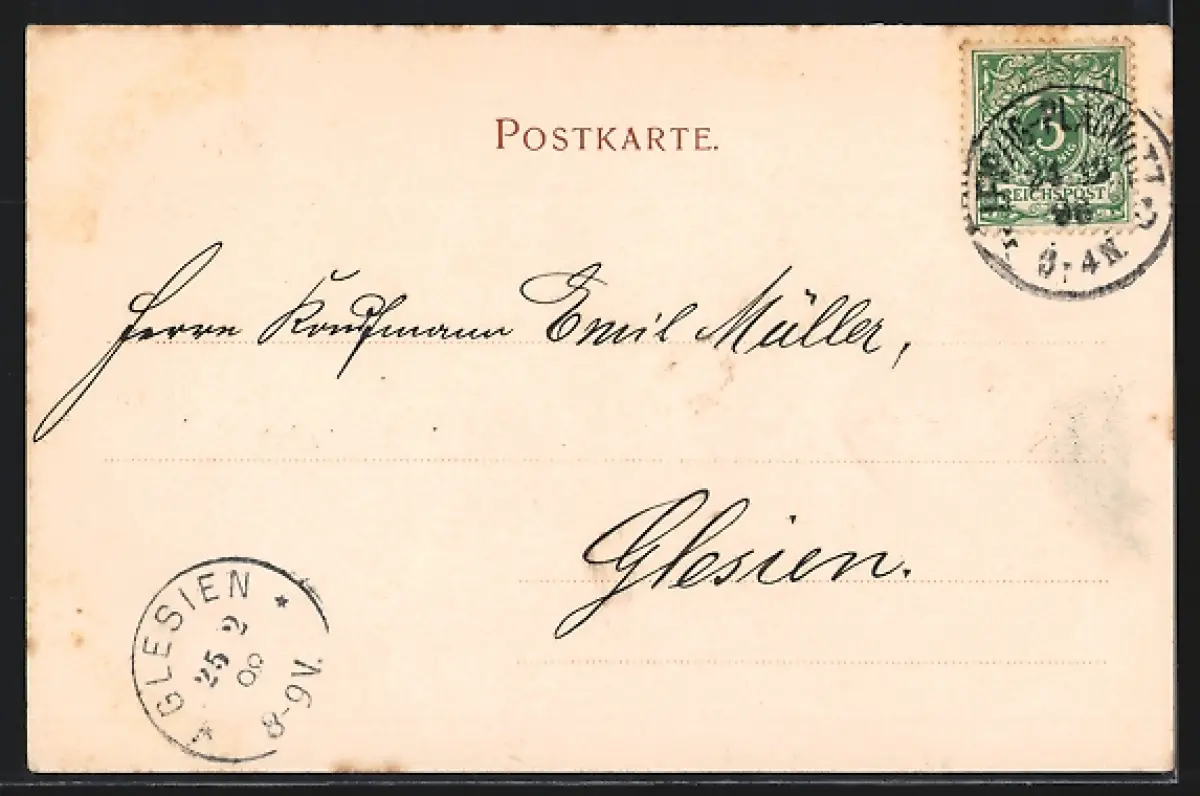 POSTKARTE.
5
PFENNIG
REICHSPOST
LEIPZIG-PLAGWITZ
3-4N.
Herrn Kaufmann Emil Müller,
Glesien.
GLESIEN
25 2
8-9V.